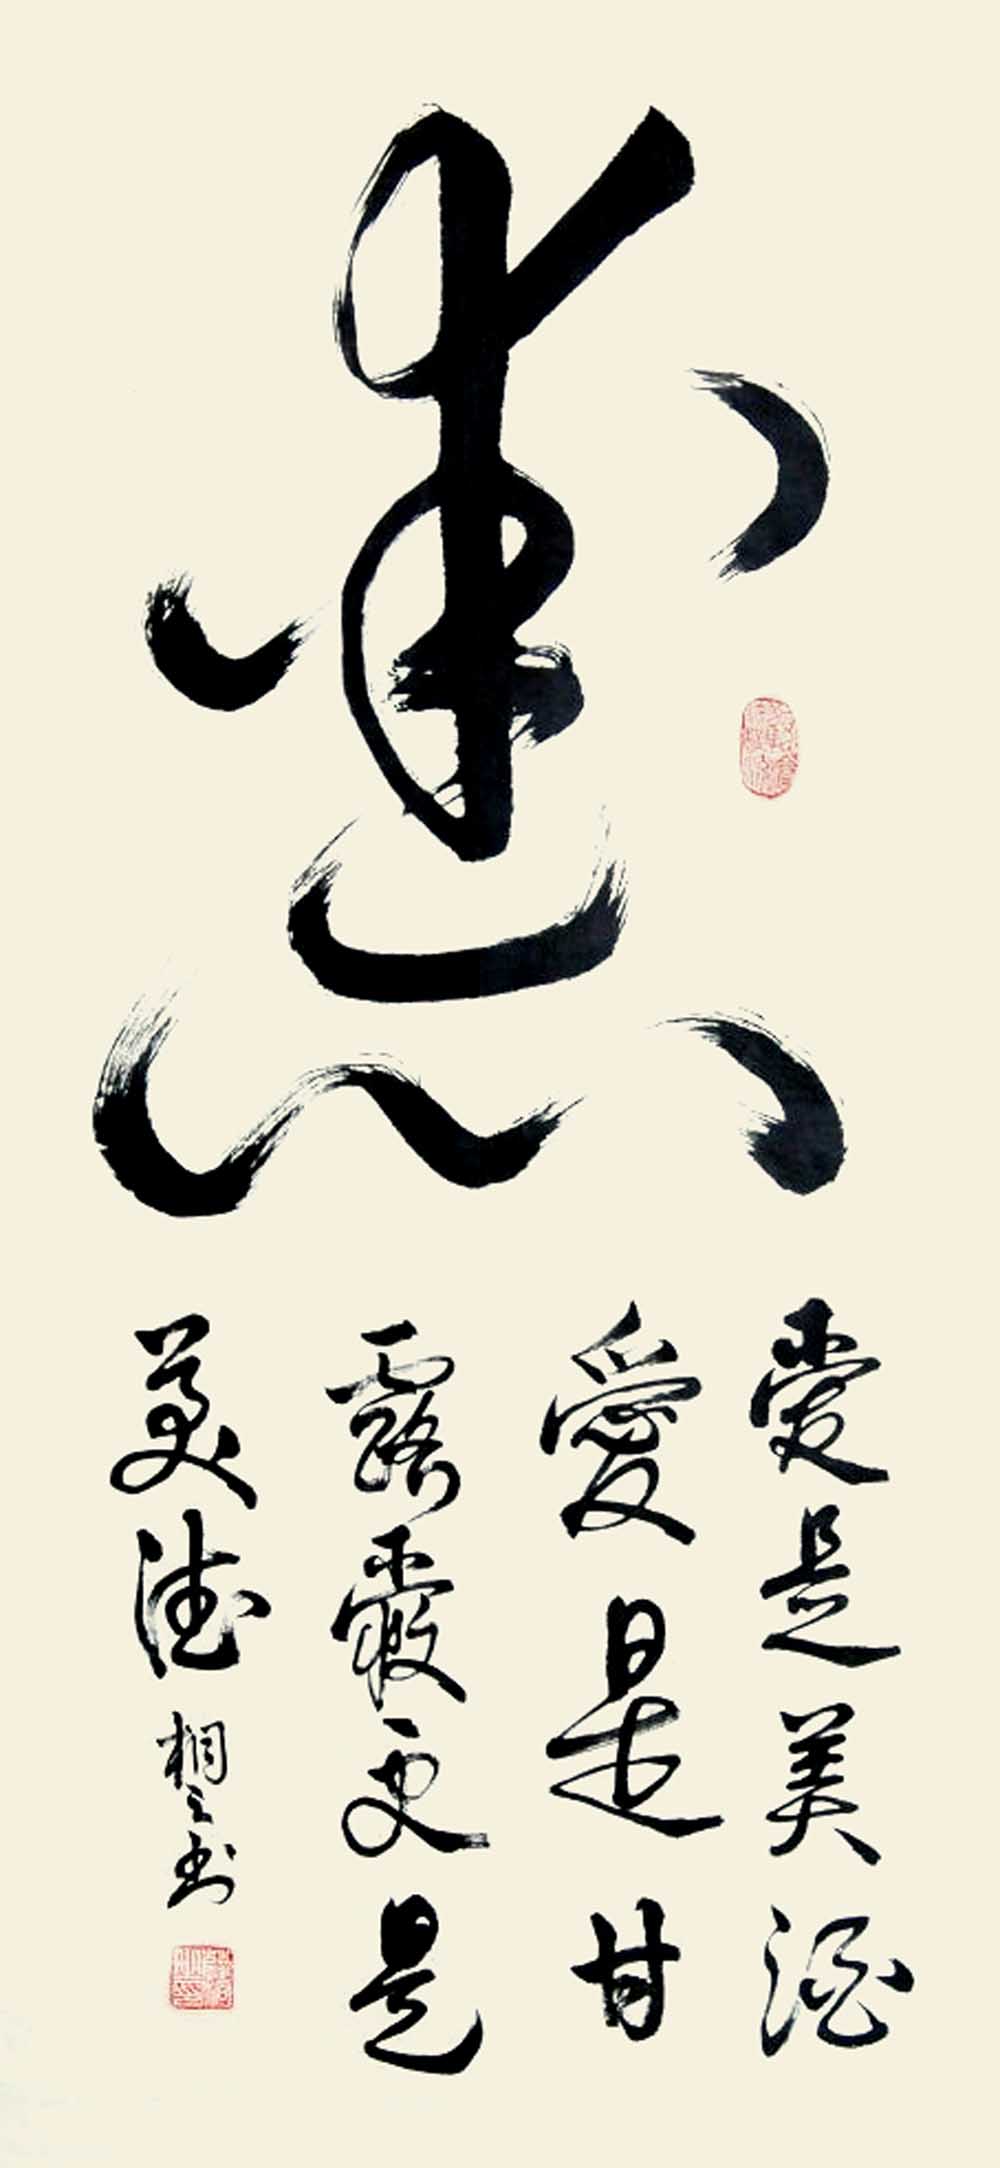 愛
愛是美酒
愛是甘
露愛更是
美德
桐之书